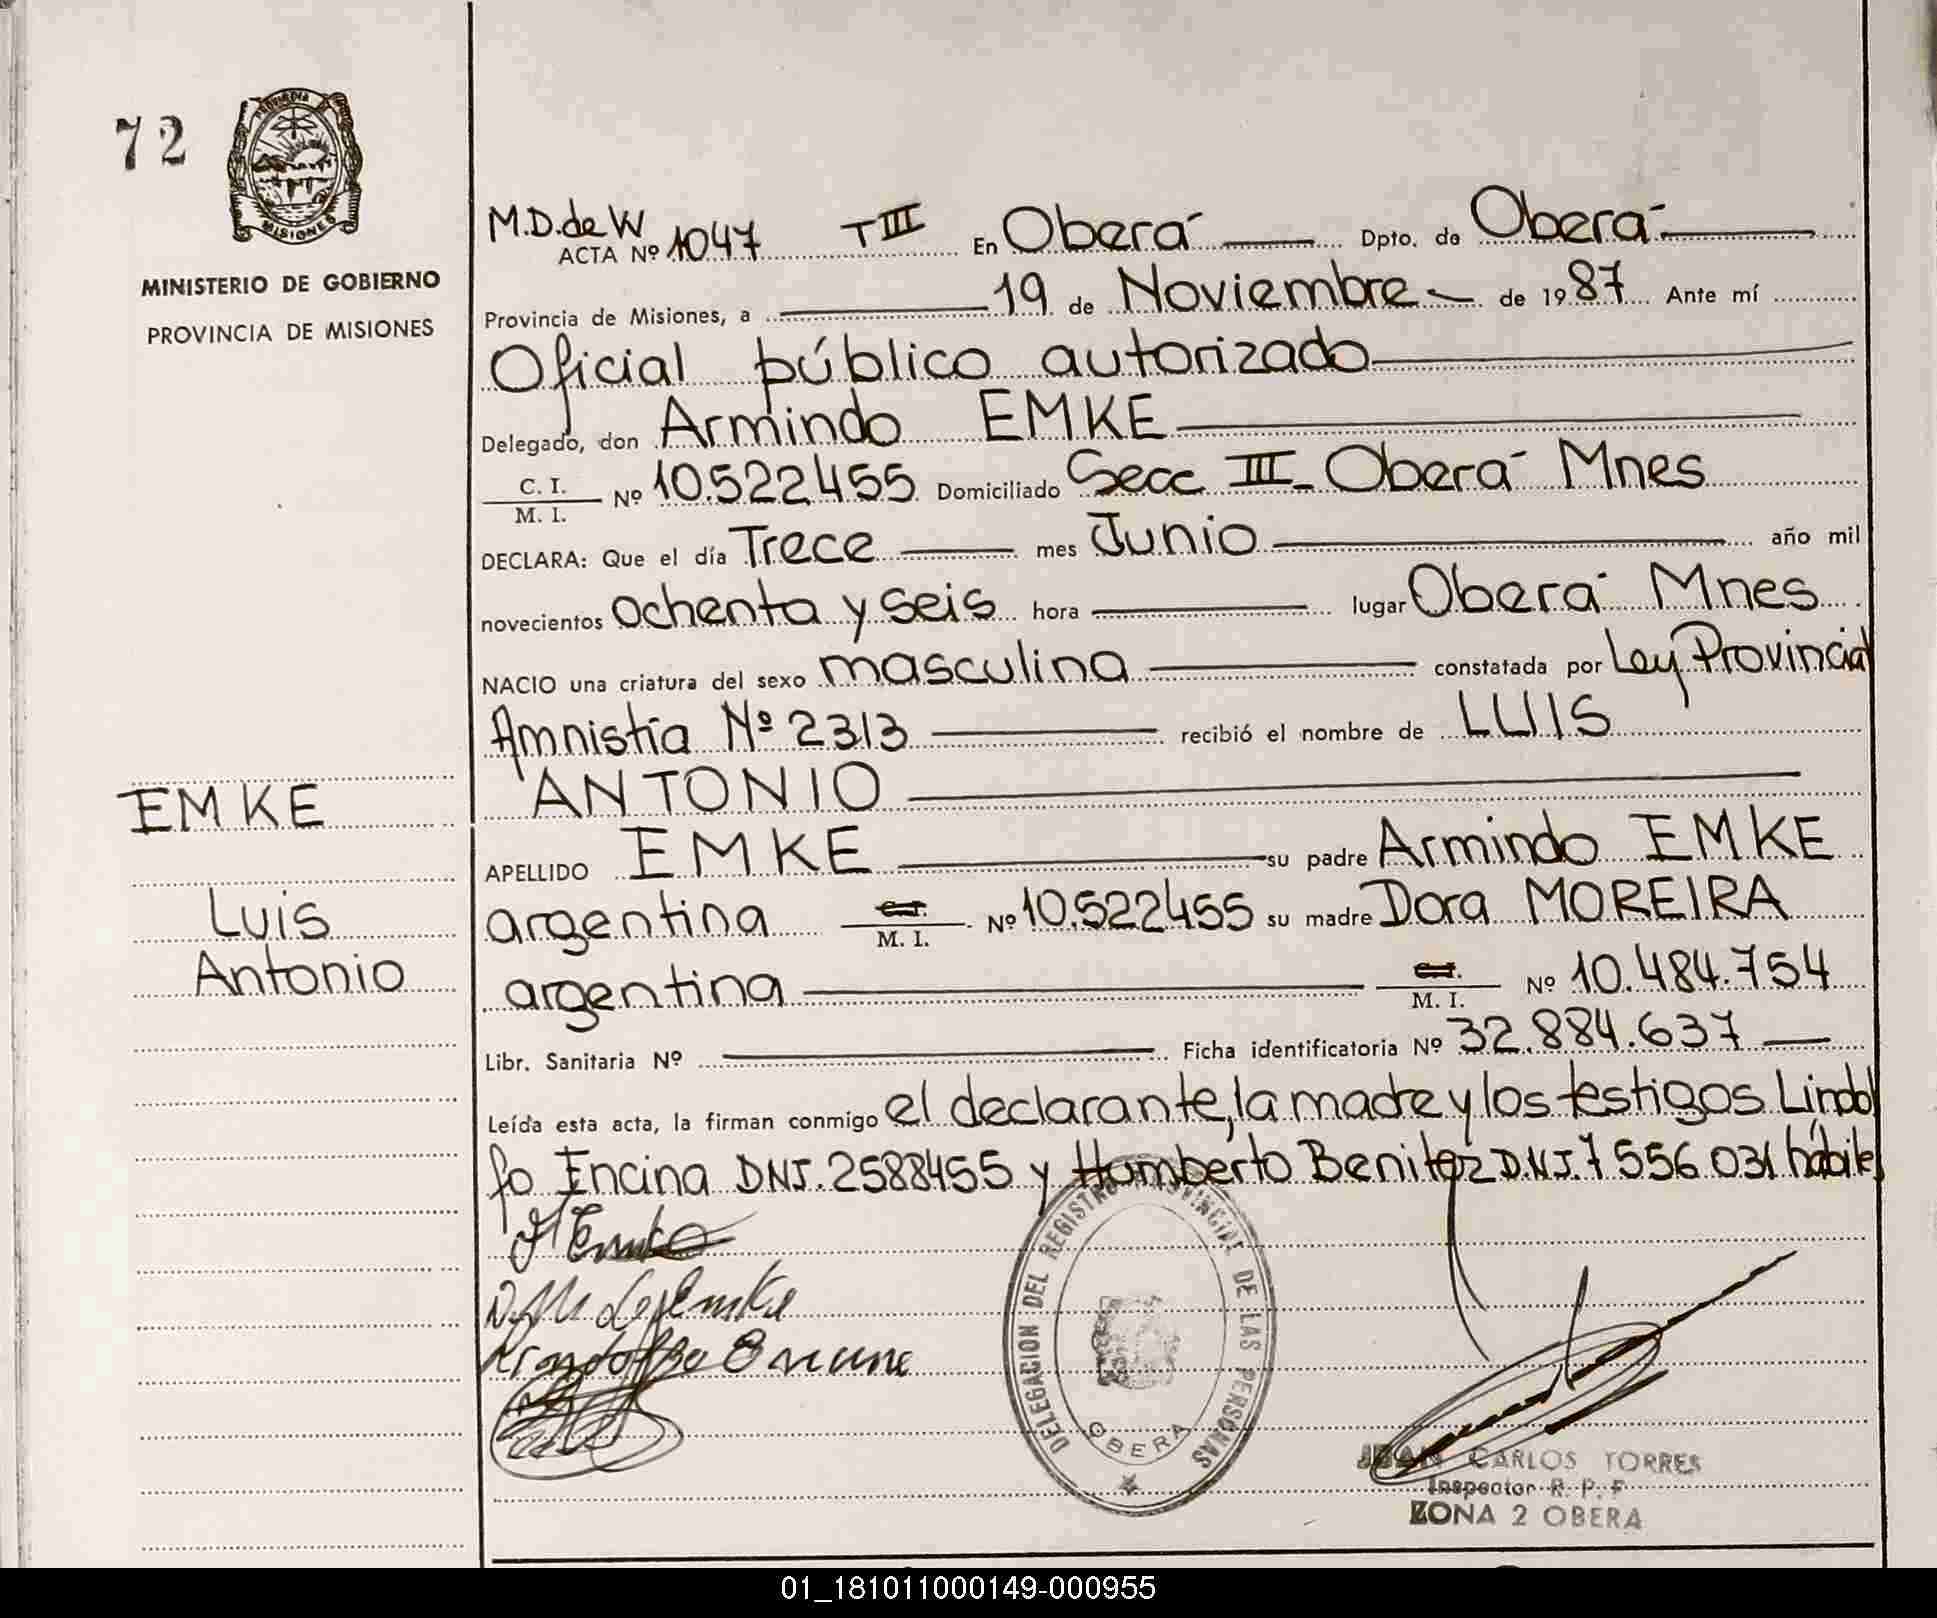 72
PROVINCIA
MISIONES
MINISTERIO DE GOBIERNO
PROVINCIA DE MISIONES
M.D.de W
ACTA Nº 1047 T III En Oberá Dpto. de Oberá
Provincia de Misiones, a 19 de Noviembre de 1987 Ante mí
Oficial público autorizado
Delegado, don Armindo EMKE
C. I.
M. I. Nº 10.522455 Domiciliado Secc III - Oberá Mnes
DECLARA: Que el día Trece mes Junio año mil
novecientos ochenta y seis hora lugar Oberá Mnes
NACIO una criatura del sexo masculina constatada por Ley Provincial
Amnistía Nº 2313 recibió el nombre de LUIS
ANTONIO
APELLIDO EMKE su padre Armindo EMKE
argentina C. I. M. I. Nº 10.522455 su madre Dora MOREIRA
argentina C. I. M. I. Nº 10.484.754
Libr. Sanitaria Nº Ficha identificatoria Nº 32.884.637
Leída esta acta, la firman conmigo el declarante, la madre y los testigos Lindol
fo Encina DNI. 2588455 y Humberto Benitez D.N.I. 7 556 031 hábiles
EMKE
Luis
Antonio
DELEGACION DEL REGISTRO PROVINCIAL DE LAS PERSONAS
OBERA
JUAN CARLOS TORRES
Inspector R. P. P
ZONA 2 OBERA
01_181011000149-000955